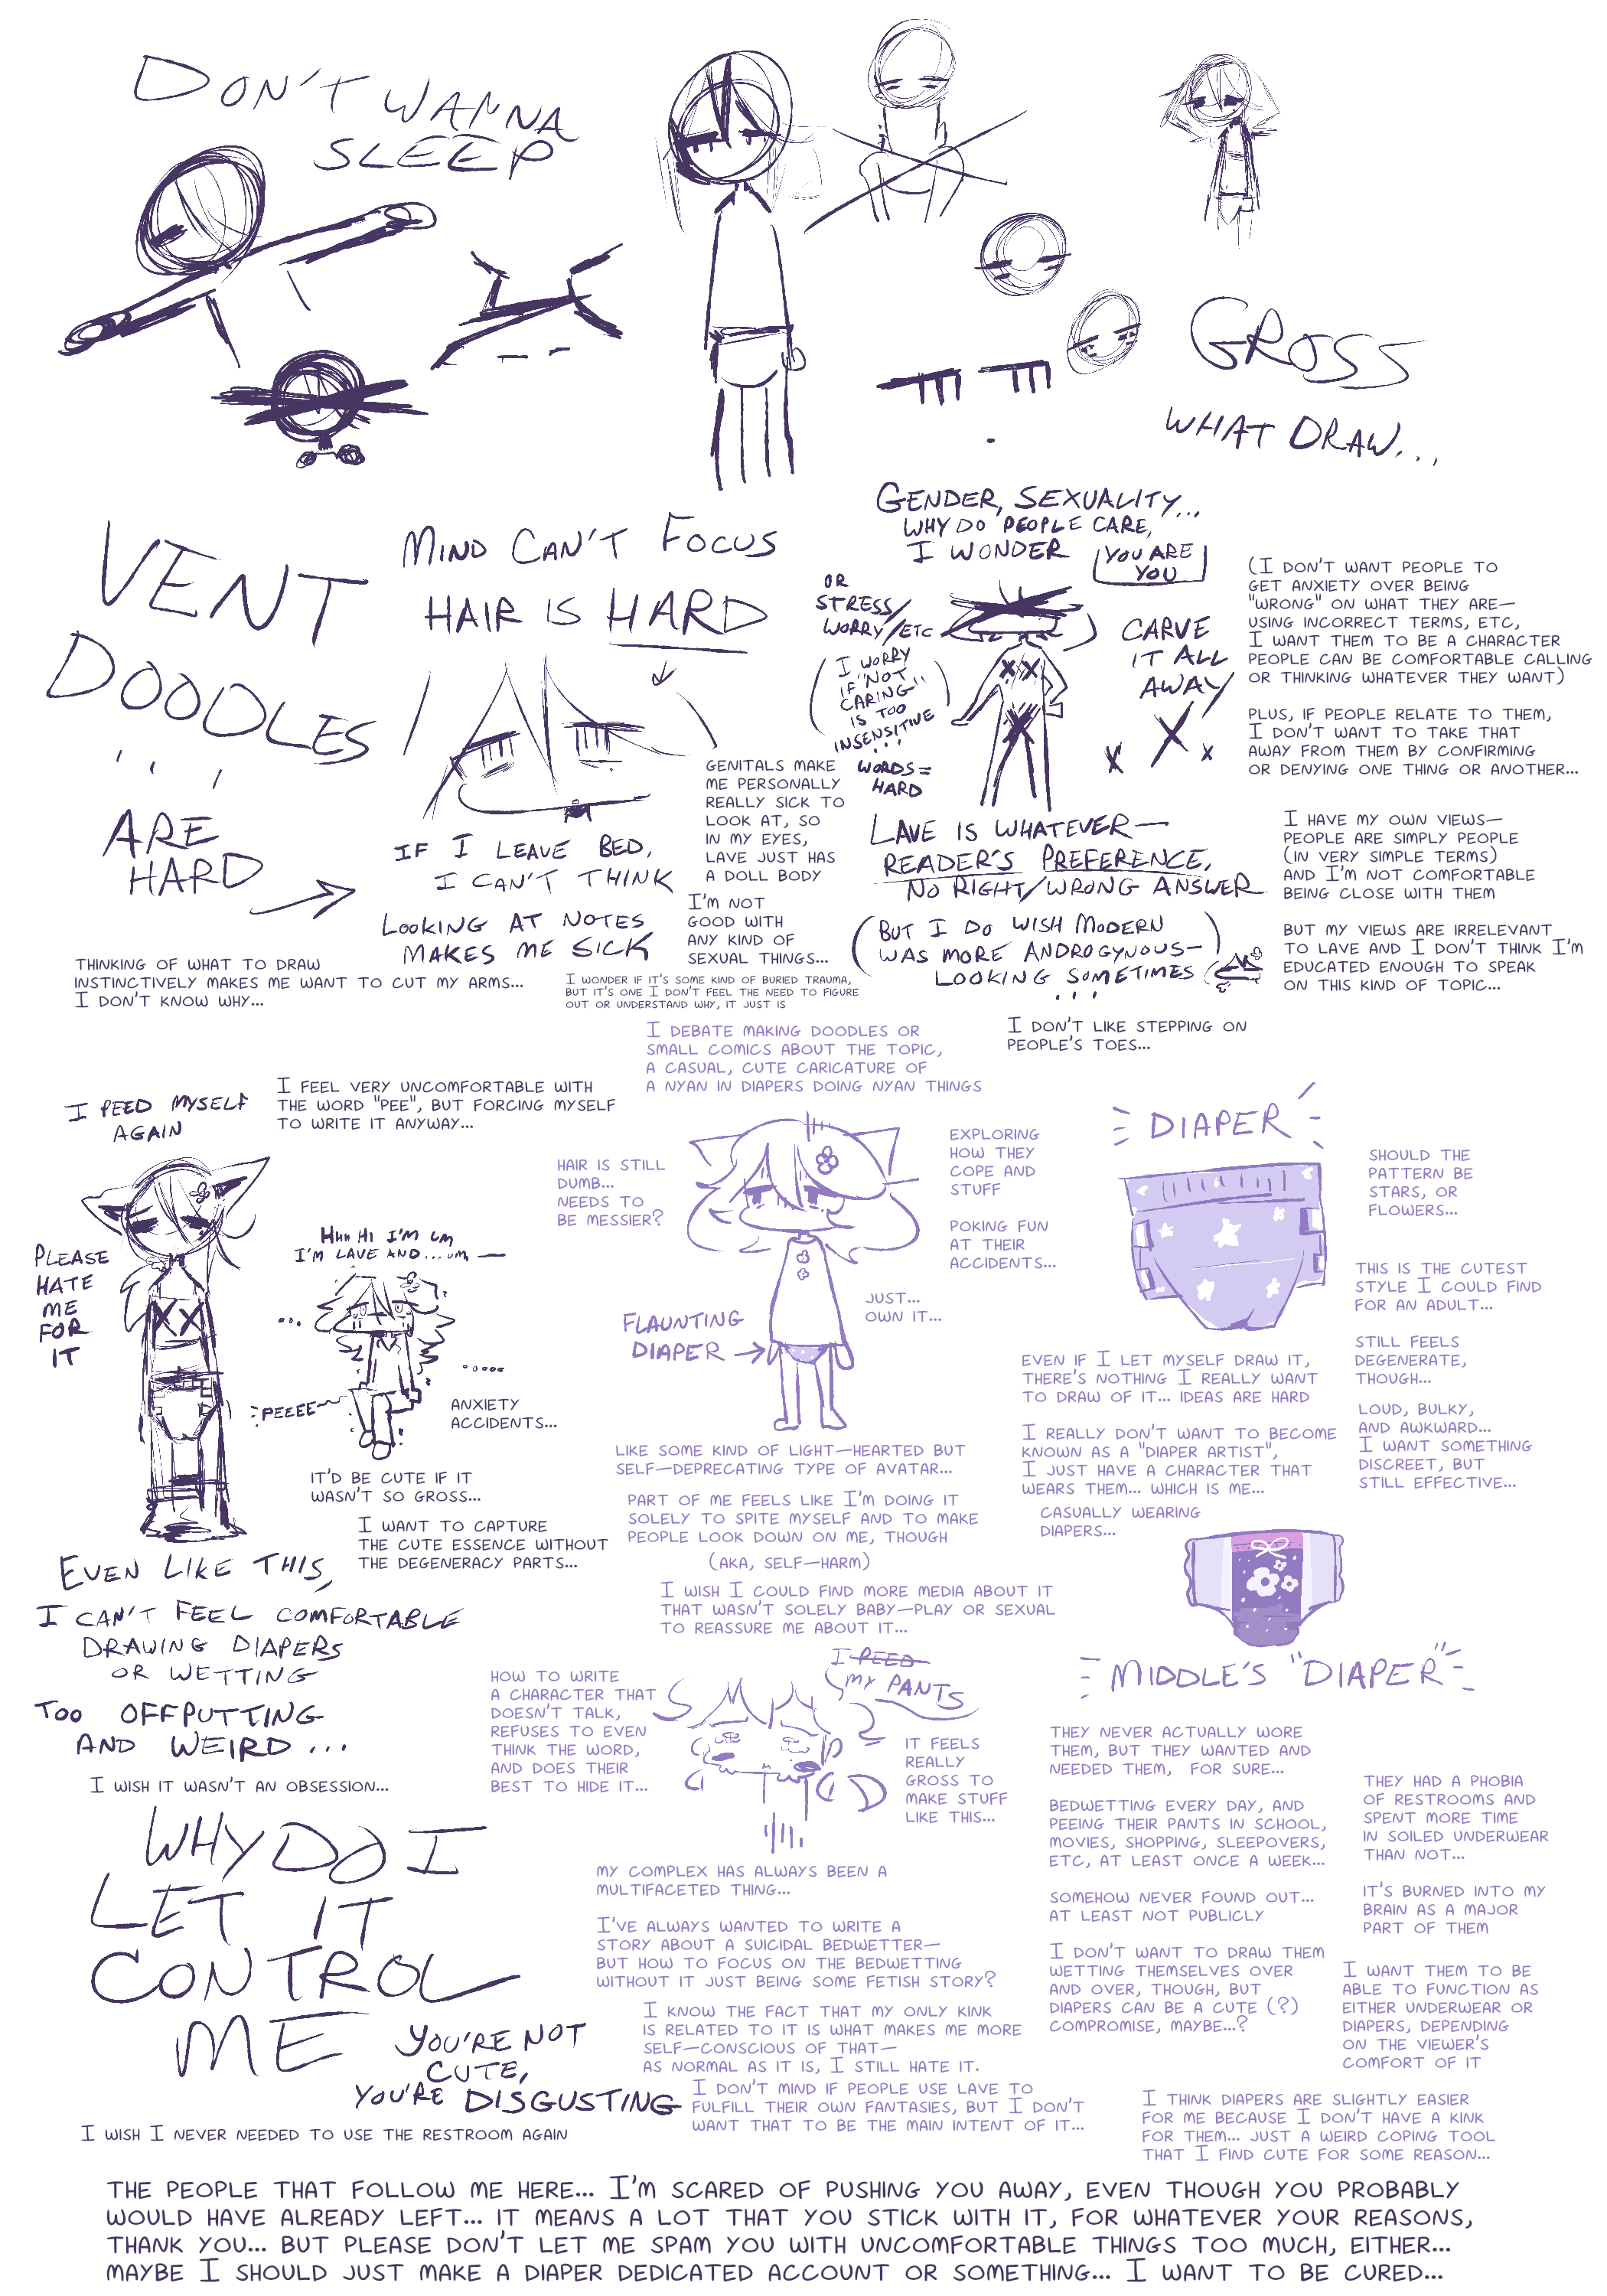 DON'T WANNA
SLEEP
GROSS
WHAT DRAW...
VENT
DOODLES
...
ARE
HARD
MIND CAN'T FOCUS
HAIR IS HARD
IF I LEAVE BED,
I CAN'T THINK
LOOKING AT NOTES
MAKES ME SICK
THINKING OF WHAT TO DRAW
INSTINCTIVELY MAKES ME WANT TO CUT MY ARMS...
I DON'T KNOW WHY...
GENDER, SEXUALITY...
WHY DO PEOPLE CARE,
I WONDER
YOU ARE
YOU
OR
STRESS/
WORRY/ETC
(I WORRY
IF "NOT
CARING"
IS TOO
INSENSITIVE
...)
WORDS=
HARD
CARVE
IT ALL
AWAY
(I DON'T WANT PEOPLE TO
GET ANXIETY OVER BEING
"WRONG" ON WHAT THEY ARE—
USING INCORRECT TERMS, ETC,
I WANT THEM TO BE A CHARACTER
PEOPLE CAN BE COMFORTABLE CALLING
OR THINKING WHATEVER THEY WANT)
PLUS, IF PEOPLE RELATE TO THEM,
I DON'T WANT TO TAKE THAT
AWAY FROM THEM BY CONFIRMING
OR DENYING ONE THING OR ANOTHER...
GENITALS MAKE
ME PERSONALLY
REALLY SICK TO
LOOK AT, SO
IN MY EYES,
LAVE JUST HAS
A DOLL BODY
I'M NOT
GOOD WITH
ANY KIND OF
SEXUAL THINGS...
I WONDER IF IT'S SOME KIND OF BURIED TRAUMA,
BUT IT'S ONE I DON'T FEEL THE NEED TO FIGURE
OUT OR UNDERSTAND WHY, IT JUST IS
LAVE IS WHATEVER—
READER'S PREFERENCE,
NO RIGHT/WRONG ANSWER
(BUT I DO WISH MODERN
WAS MORE ANDROGYNOUS—
LOOKING SOMETIMES
...)
I HAVE MY OWN VIEWS—
PEOPLE ARE SIMPLY PEOPLE
(IN VERY SIMPLE TERMS)
AND I'M NOT COMFORTABLE
BEING CLOSE WITH THEM
BUT MY VIEWS ARE IRRELEVANT
TO LAVE AND I DON'T THINK I'M
EDUCATED ENOUGH TO SPEAK
ON THIS KIND OF TOPIC...
I DON'T LIKE STEPPING ON
PEOPLE'S TOES...
I DEBATE MAKING DOODLES OR
SMALL COMICS ABOUT THE TOPIC,
A CASUAL, CUTE CARICATURE OF
A NYAN IN DIAPERS DOING NYAN THINGS
I PEED MYSELF
AGAIN
I FEEL VERY UNCOMFORTABLE WITH
THE WORD "PEE", BUT FORCING MYSELF
TO WRITE IT ANYWAY...
PLEASE
HATE
ME
FOR
IT
HHH HI I'M UM
I'M LAVE AND...UM, —
...
.....
PEEEE~
ANXIETY
ACCIDENTS...
IT'D BE CUTE IF IT
WASN'T SO GROSS...
I WANT TO CAPTURE
THE CUTE ESSENCE WITHOUT
THE DEGENERACY PARTS...
EVEN LIKE THIS,
I CAN'T FEEL COMFORTABLE
DRAWING DIAPERS
OR WETTING
TOO OFFPUTTING
AND WEIRD...
I WISH IT WASN'T AN OBSESSION...
WHY DO I
LET IT
CONTROL
ME
YOU'RE NOT
CUTE,
YOU'RE DISGUSTING
I WISH I NEVER NEEDED TO USE THE RESTROOM AGAIN
HAIR IS STILL
DUMB...
NEEDS TO
BE MESSIER?
EXPLORING
HOW THEY
COPE AND
STUFF
POKING FUN
AT THEIR
ACCIDENTS...
JUST...
OWN IT...
FLAUNTING
DIAPER
LIKE SOME KIND OF LIGHT—HEARTED BUT
SELF—DEPRECATING TYPE OF AVATAR...
PART OF ME FEELS LIKE I'M DOING IT
SOLELY TO SPITE MYSELF AND TO MAKE
PEOPLE LOOK DOWN ON ME, THOUGH
(AKA, SELF—HARM)
I WISH I COULD FIND MORE MEDIA ABOUT IT
THAT WASN'T SOLELY BABY—PLAY OR SEXUAL
TO REASSURE ME ABOUT IT...
DIAPER
SHOULD THE
PATTERN BE
STARS, OR
FLOWERS...
THIS IS THE CUTEST
STYLE I COULD FIND
FOR AN ADULT...
STILL FEELS
DEGENERATE,
THOUGH...
LOUD, BULKY,
AND AWKWARD...
I WANT SOMETHING
DISCREET, BUT
STILL EFFECTIVE...
EVEN IF I LET MYSELF DRAW IT,
THERE'S NOTHING I REALLY WANT
TO DRAW OF IT... IDEAS ARE HARD
I REALLY DON'T WANT TO BECOME
KNOWN AS A "DIAPER ARTIST",
I JUST HAVE A CHARACTER THAT
WEARS THEM... WHICH IS ME...
CASUALLY WEARING
DIAPERS...
MIDDLE'S "DIAPER"
HOW TO WRITE
A CHARACTER THAT
DOESN'T TALK,
REFUSES TO EVEN
THINK THE WORD,
AND DOES THEIR
BEST TO HIDE IT...
I PEED
MY PANTS
IT FEELS
REALLY
GROSS TO
MAKE STUFF
LIKE THIS...
MY COMPLEX HAS ALWAYS BEEN A
MULTIFACETED THING...
I'VE ALWAYS WANTED TO WRITE A
STORY ABOUT A SUICIDAL BEDWETTER—
BUT HOW TO FOCUS ON THE BEDWETTING
WITHOUT IT JUST BEING SOME FETISH STORY?
I KNOW THE FACT THAT MY ONLY KINK
IS RELATED TO IT IS WHAT MAKES ME MORE
SELF—CONSCIOUS OF THAT—
AS NORMAL AS IT IS, I STILL HATE IT.
I DON'T MIND IF PEOPLE USE LAVE TO
FULFILL THEIR OWN FANTASIES, BUT I DON'T
WANT THAT TO BE THE MAIN INTENT OF IT...
THEY NEVER ACTUALLY WORE
THEM, BUT THEY WANTED AND
NEEDED THEM, FOR SURE...
BEDWETTING EVERY DAY, AND
PEEING THEIR PANTS IN SCHOOL,
MOVIES, SHOPPING, SLEEPOVERS,
ETC, AT LEAST ONCE A WEEK...
SOMEHOW NEVER FOUND OUT...
AT LEAST NOT PUBLICLY
I DON'T WANT TO DRAW THEM
WETTING THEMSELVES OVER
AND OVER, THOUGH, BUT
DIAPERS CAN BE A CUTE (?)
COMPROMISE, MAYBE...?
THEY HAD A PHOBIA
OF RESTROOMS AND
SPENT MORE TIME
IN SOILED UNDERWEAR
THAN NOT...
IT'S BURNED INTO MY
BRAIN AS A MAJOR
PART OF THEM
I WANT THEM TO BE
ABLE TO FUNCTION AS
EITHER UNDERWEAR OR
DIAPERS, DEPENDING
ON THE VIEWER'S
COMFORT OF IT
I THINK DIAPERS ARE SLIGHTLY EASIER
FOR ME BECAUSE I DON'T HAVE A KINK
FOR THEM... JUST A WEIRD COPING TOOL
THAT I FIND CUTE FOR SOME REASON...
THE PEOPLE THAT FOLLOW ME HERE... I'M SCARED OF PUSHING YOU AWAY, EVEN THOUGH YOU PROBABLY
WOULD HAVE ALREADY LEFT... IT MEANS A LOT THAT YOU STICK WITH IT, FOR WHATEVER YOUR REASONS,
THANK YOU... BUT PLEASE DON'T LET ME SPAM YOU WITH UNCOMFORTABLE THINGS TOO MUCH, EITHER...
MAYBE I SHOULD JUST MAKE A DIAPER DEDICATED ACCOUNT OR SOMETHING... I WANT TO BE CURED...